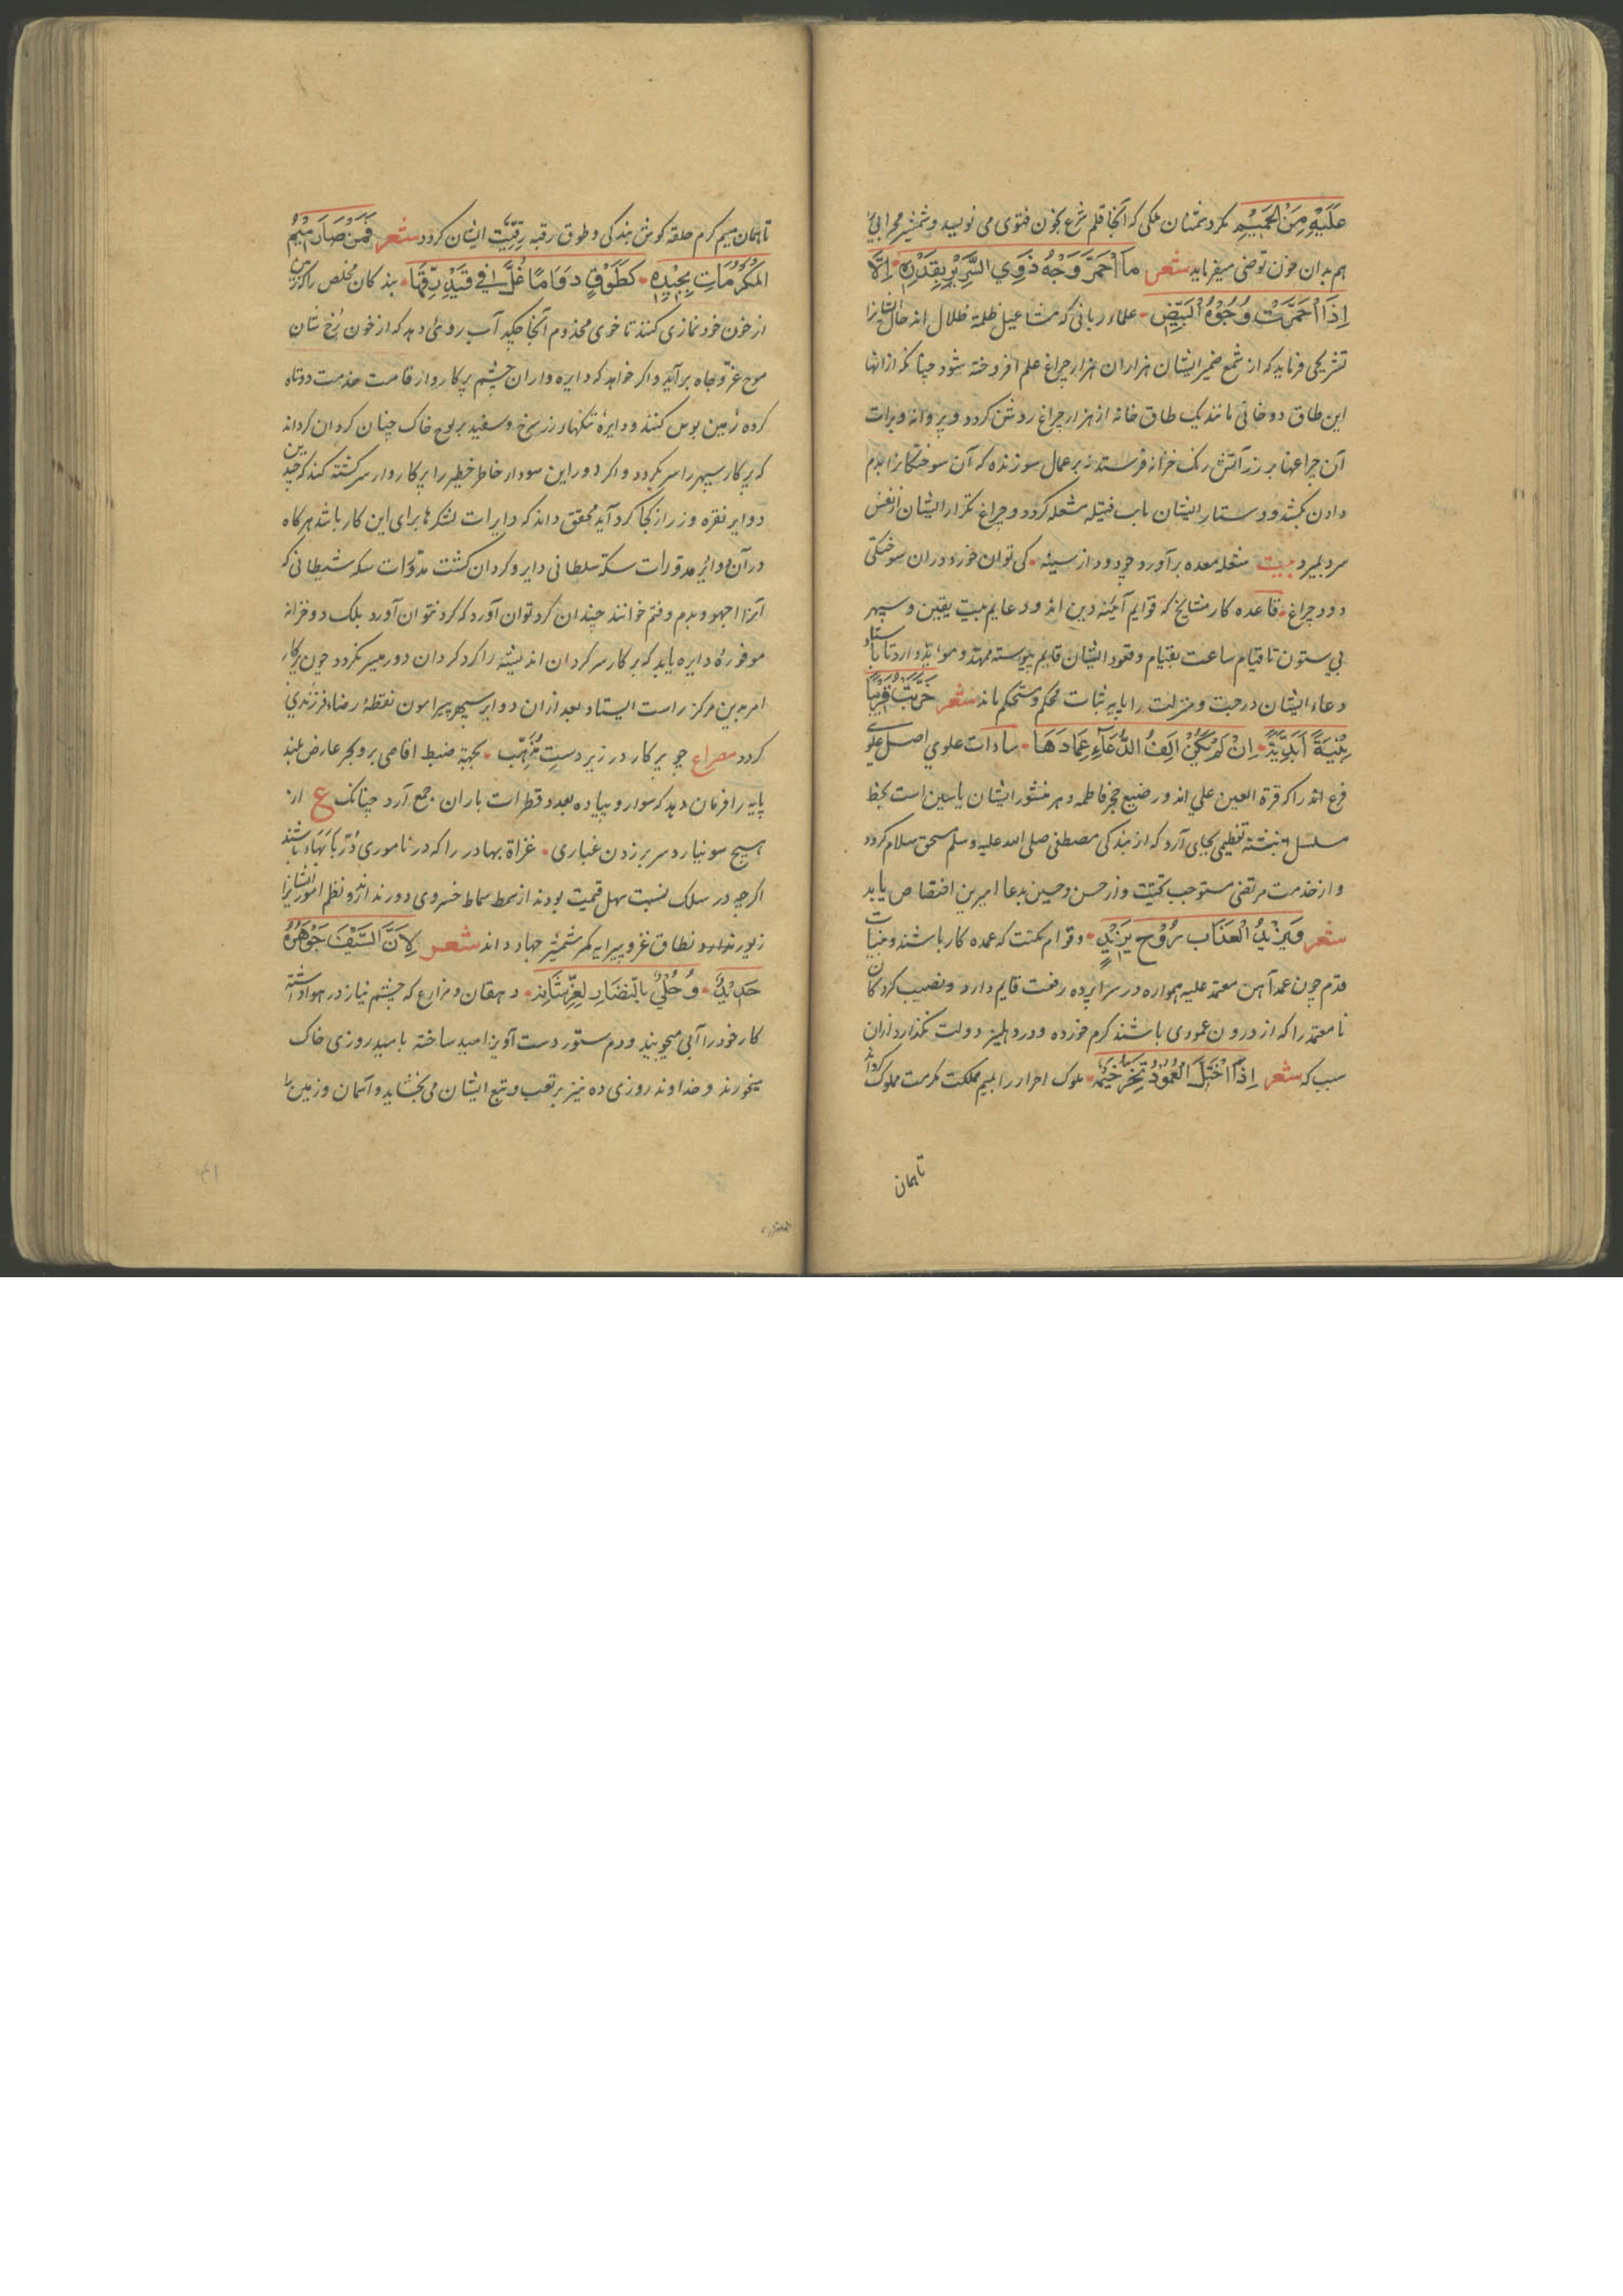 عَلَيْهِ مِنَ الْحَمِيْمِ نکرد شان ملکی که آنجا قلم شرع بخون فتوی می نویسد و شمشیر محرابی
هم بدان خون توضی میفرماید شعر مَا احْمَرَّ وَجْهُ ذَوِي السَّرِيْرِ بِقَدْرِهِ • اِلَّا
اِذَا احْمَرَّتْ وُجُوْهُ الْبِيْضِ • علماء ربانی که مشاعیل ظلمة ظلال اند حال ایشانرا
تشریحی فرماید که از شمع ضمیر ایشان هزاران هزار چراغ علم افروخته شود چنانکه از انها
این طاق دوخانی مانند یک طاق خانه از هزار چراغ روشن کردد و پروانه و برات
آن چراعها بر زر آتش رنک خزانه فرستد نه بر عمال سوزنده که آن سوختکانرا بدم
دادن بکشد و دستار ایشان باب فتیله مشعله کردد و چراغ تکرار ایشان از نفس
سرد بمیرد بیت شعله معده برآورد چو دود از سینه • کی توان خورد دران سوختکی
دود چراغ • قاعده کار مشایخ که قوایم آینه دین اند و دعایم بیت یقین و سپهر
بی ستون تا قیام ساعت بقیام وقعود ایشان قایم پیوسته ممهد و موید دارد تا باستاد
دعاء ایشان درجت و منزلت را پایه ثبات محکم و مستحکم ماند شعر خَرِبَتْ قَرِيْبًا
بِنْيَةً اَبَدِيَّةً • اِنْ لَمْ يَكُنْ اَلِفُ الدُّعَاءِ عِمَادَهَا • سادات علوي اصل علوي
فرع اند را که قرة العین علي اند و رضیع حجر فاطمه و بر منشور ایشان یاسین است بخط
مسلسل نبشته تعظیمی بجای آرد که از بندکی مصطفی صلی الله علیه وسلم مستحق سلام کردد
و از خدمت مرتضی مستوجب تحیّت و زر حسن و حسین بدعا امیرین اختصاص یابد
شعر وَيَزِيْدُ الْعَذَابَ بِرُوْحِ يَزِيْدٍ • وقوام مکنت که عمده کار باشند و منیات
قدم چون عمد آهن معتمد علیه همواره در سراپرده رفعت قایم دارد و نصیب کردکان
نا معتمد را که از درون عمودی باشند کرم خورده و در دهلیز دولت نکذارد ازان
سبب که شعر اِذَا اخْتَلَّ الْعُمُوْدُ تَخِرُّ خَيْمَه • ملوک احرار را بمیم مملکت مکرمت مملوک کرداند
تا همان
تا همان میم کرم حلقه کوش بندکی و طوق رقبه رقیّت ایشان کردد شعر فَمَنْ صَادَ مِيْمُ
الْمَكْرُمَاتِ بِجِيْدِهِ • كَطَوْقٍ دَوَامًا غُلَّ فِي قَيْدِ رِقِّهَا • بندکان مخلص را که
از خون خود نمازی کنند تا خوی مخدوم آنجا چکد آب روئی دهد که از خون رخ شان
موج عزّ و جاه برآید و اکر خواهد که دایره واران چشم پرکار و از قامت خدمت دوتاه
کرده زمین بوس کنند و دایرۀ تنکهاء زر سرخ و سفید بر لوح خاک چنان کردان کرداند
که پرکار سپهر را سر بکردد و اکر دوراین سودا در خاطر خطیر را پرکار وار سرکشته کند که چندین
دوایر نقره و زر از کجا کرد آید محقق داند که دایرات لشکرها برای این کار باشد هرکاه
در آن دوایر مدوّرات سکه سلطانی دایر و کردان کشت مدوّرات سکه شیطانی که
آنرا اجهو و بدم وفتم خوانند چندان کرد توان آورد که کرد نتوان آورد بلک دو خزانه
موفوره دایره باید که پرکار سرکردان اندیشه را کرد کردان دور میسر نکردد چون پرکار
امر بدین مرکز راست ایستاد بعد ازان دوایر سپهر پیرامون نقطۀ رضاء فرزندی
کردد مصراع چو پرکار در زیر دستِ مُذَهِّب • بجهة ضبط اقاصی بر و بحر عارض بلند
پایه را فرمان دهد که سوار و پیاده بعدد قطرات باران جمع آرد چنانک ع از
هیچ سو نیارد سر برزدن غباری • غزاة بهادر را که در ناموری دُرّ با بَهَاء باشند
اکرچه در سلک نسبت سهل قیمت بودند از سمط سماط خسروی دور نداند و نظم امور ایشانرا
زیور نطاق غز و پیرایه کمر شمشیر جهاد داند شعر لِاَنَّ السَّيْفَ جَوْهَرُهُ
حَدِيْدٌ • وَحُلِّيْ بِالنُّضَارِ لِعِزِّ شَانِهِ • دهقان و مزارع که چشم نیاز در هوا داشته
کار خود را آبی میجویند و دم ستور دست آویز امید ساخته بامید روزی خاک
میخورند و خداوند روزی ده نیز بر تعب و تبع ایشان می بخشاید و آسمان و زمین را